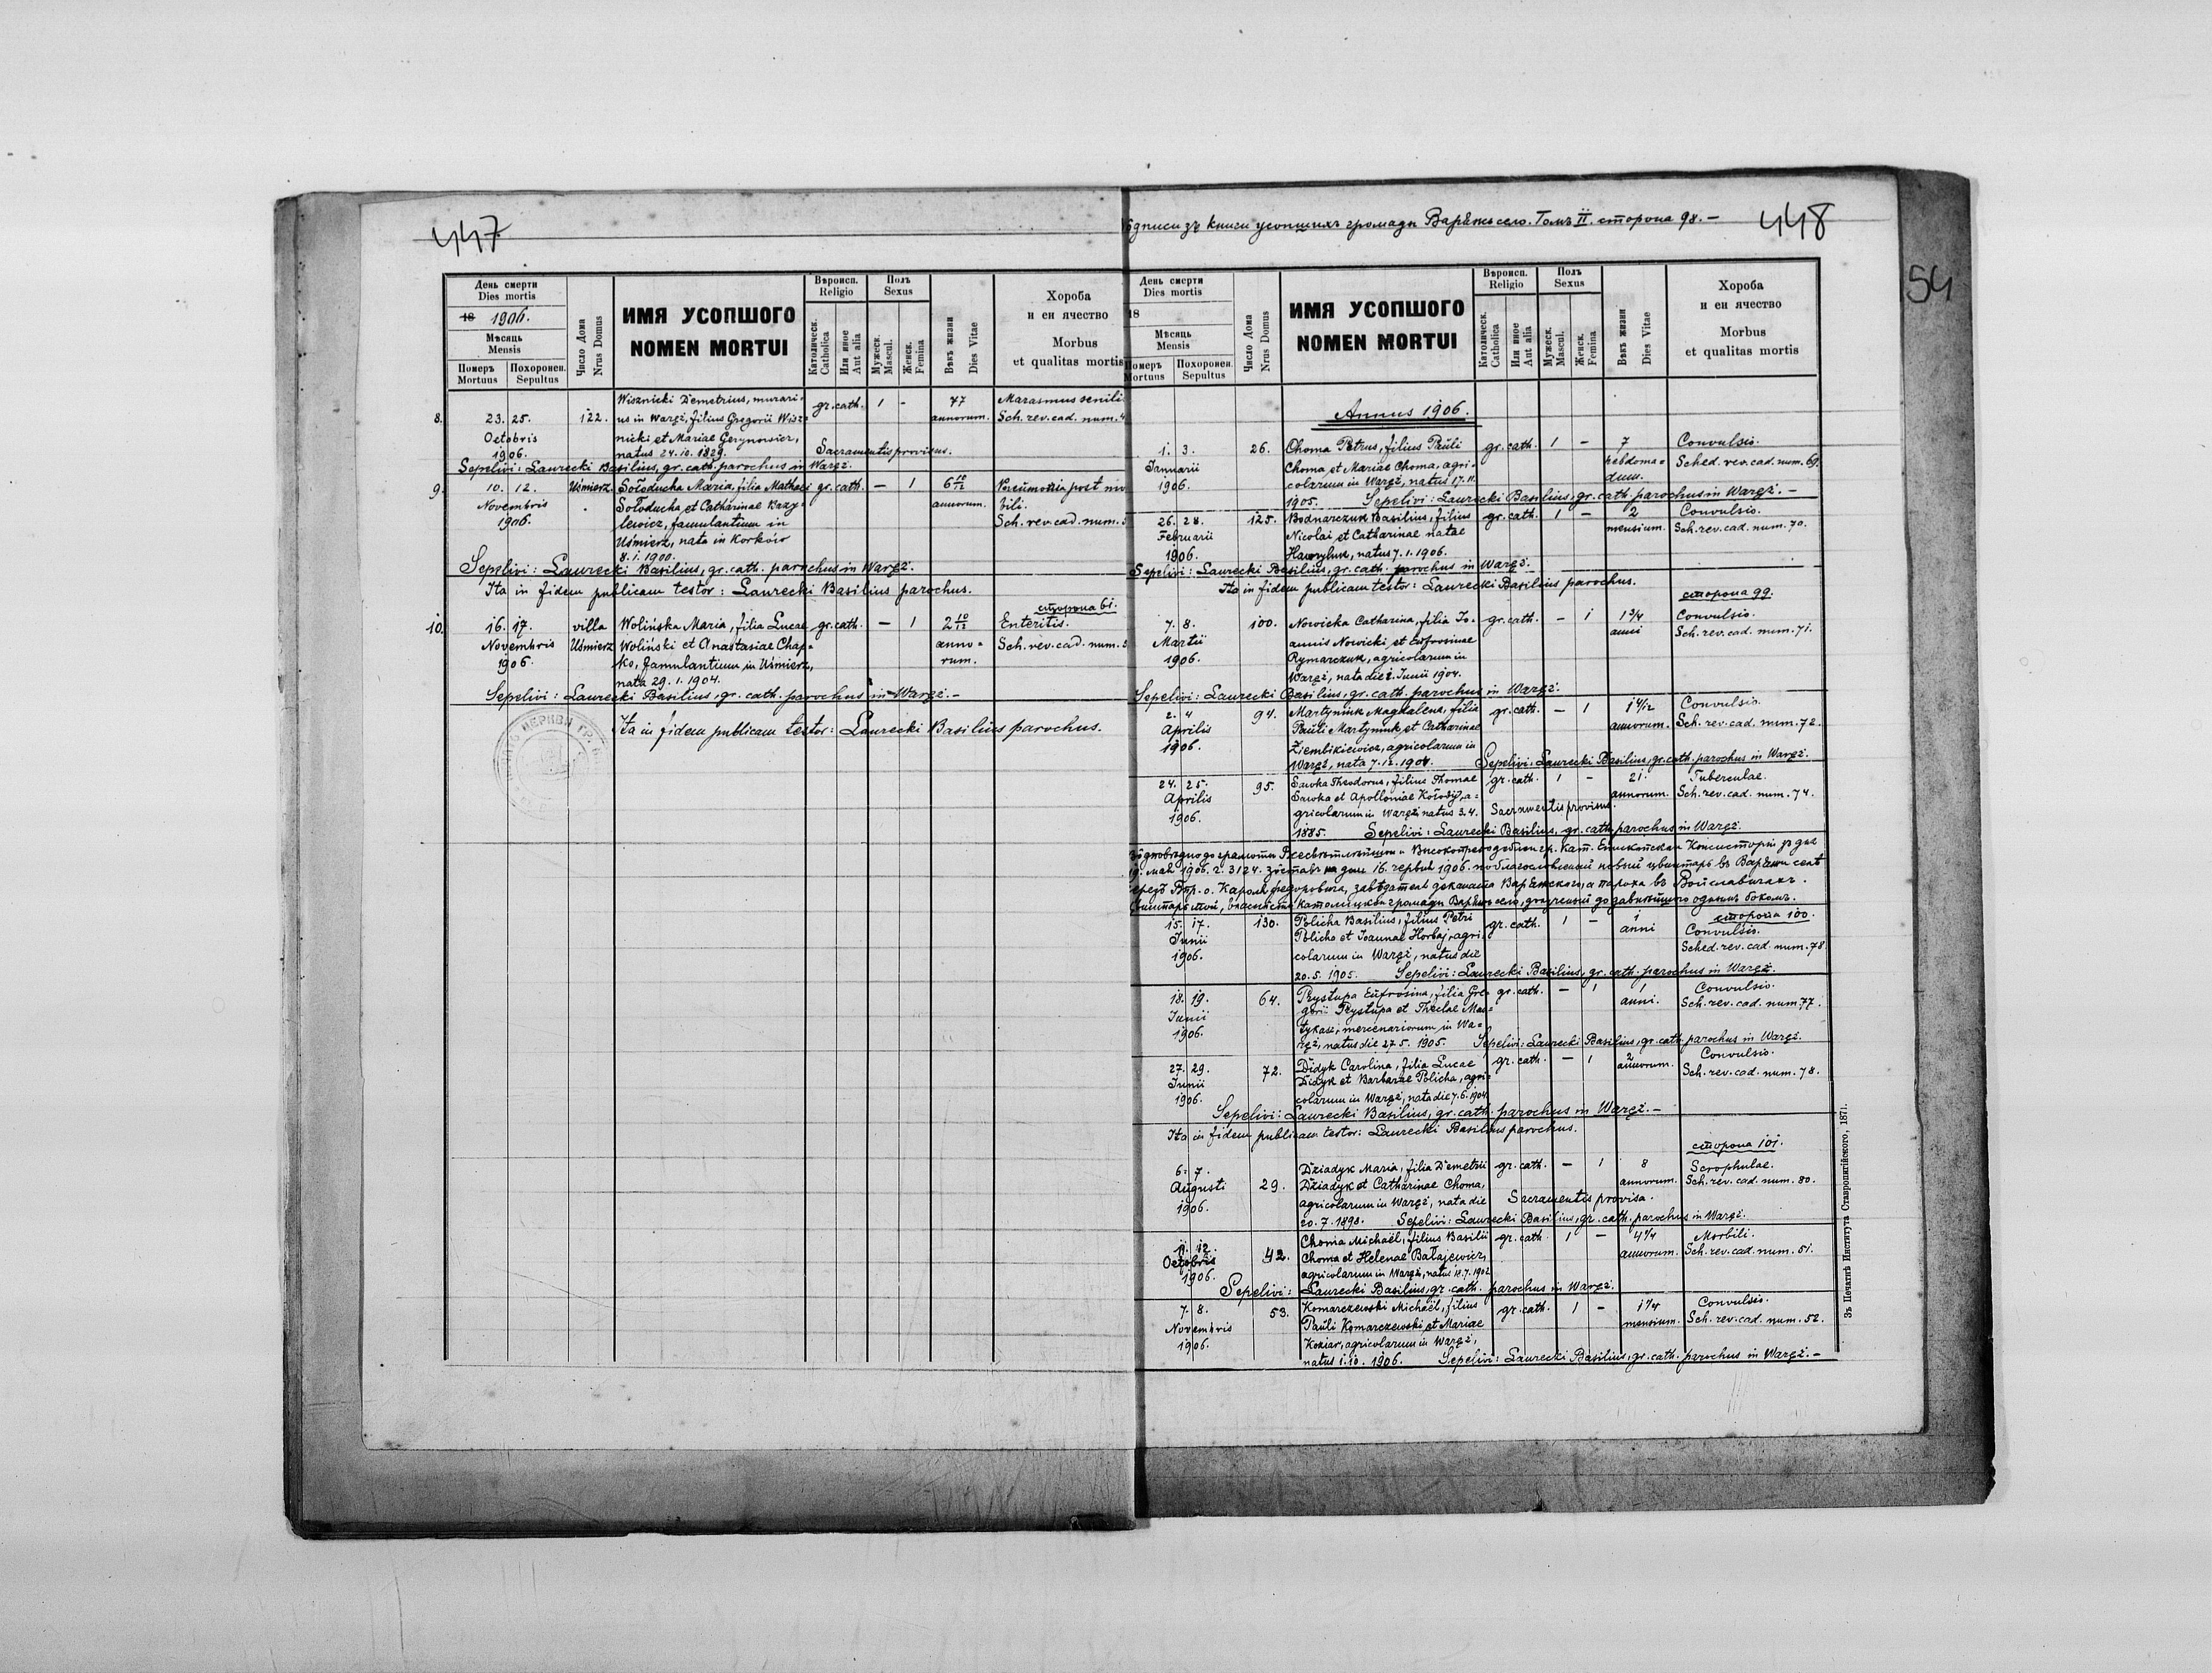 447
День смерти
Dies mortis
18 1906.
Мѣсяць
Mensis
Померъ
Mortuus
Похоронен.
Sepultus
Число Дома
Nrus Domus
ИМЯ УСОПШОГО
NOMEN MORTUI
Вѣроисп.
Religio
Католическ.
Catholica
Или иное
Aut alia
Полъ
Sexus
Мужеск.
Mascul.
Женск.
Femina
Вѣкъ жизни
Dies Vitae
Хороба
и еи ячество
Morbus
et qualitas mortis
8. 23. 25. 122. Wisznicki Demetrius, murari= gr. cath. 1 - 77 Marasmus senili
us in Waręż, filius Gregorii Wisz= annorum. Sch. rev. cad. num. 4
Octobris nicki et Mariae
1906. natus 24. 10. 1829. Sacramentis provisus.
Sepelivi: Laurecki Basilius, gr. cath. parochus in Waręż.
9. 10. 12. Uśmierz. Sołoducha Maria, filia Mathaei gr. cath. — 1 6 10/12 Pneumonia post mo
Novembris Sołoducha et Catharinae Bazy= annorum. bili.
1906. lewicz, famulantium in Sch. rev. cad. num. 5
Uśmierz, nata in Korków
8. 1. 1900.
Sepelivi: Laurecki Basilius, gr. cath. parochus in Waręż.
Ita in fidem publicam testor: Laurecki Basilius parochus.
сторона 61.
10. 16. 17. villa Wolińska Maria, filia Lucae gr. cath. — 1 2 10/12 Enteritis.
Novembris Uśmierz Woliński et Anastasiae Chap= anno= Sch. rev. cad. num. 5
1906. ko, famulantium in Uśmierz, rum.
nata 29. 1. 1904.
Sepelivi: Laurecki Basilius, gr. cath. parochus in Waręż.—
Ita in fidem publicam testor: Laurecki Basilius parochus.
448
54
книги усопшихъ громады Варяжъ село. Томъ II. сторона 98.—
День смерти
Dies mortis
18
Мѣсяць
Mensis
Померъ
Mortuus
Похоронен.
Sepultus
Число Дома
Nrus Domus
ИМЯ УСОПШОГО
NOMEN MORTUI
Вѣроисп.
Religio
Католическ.
Catholica
Или иное
Aut alia
Полъ
Sexus
Мужеск.
Mascul.
Женск.
Femina
Вѣкъ жизни
Dies Vitae
Хороба
и еи ячество
Morbus
et qualitas mortis
Annus 1906.
1. 3. 26. Choma Petrus, filius Pauli gr. cath. 1 — 7 Convulsio.
Januarii Choma et Mariae Choma, agri= hebdoma= Sched. rev. cad. num. 69.
1906. colarum in Waręż, natus 17. 11. dum.
1905. Sepelivi: Laurecki Basilius, gr. cath. parochus in Waręż.—
26. 28. 125. Bodnarczuk Basilius, filius gr. cath. 1 — 2 Convulsio.
Februarii Nicolai et Catharinae natae mensium. Sch. rev. cad. num. 70.
1906. Hawryluk, natus 7. 1. 1906.
Sepelivi: Laurecki Basilius, gr. cath. parochus in Waręż.
Ita in fidem publicam testor: Laurecki Basilius parochus.
сторона 99.
7. 8. 100. Nowicka Catharina, filia Jo= gr. cath. — 1 1 3/4 Convulsio.
Martii annis Nowicki et Eufrosinae anni Sch. rev. cad. num. 71.
1906. Rymarczuk, agricolarum in
Waręż, nata die 2. Junii 1904.
Sepelivi: Laurecki Basilius, gr. cath. parochus in Waręż.
2. 4 94. Martyniuk Magdalena, filia gr. cath. — 1 1 4/12 Convulsio.
Aprilis Pauli Martyniuk et Catharinae annorum. Sch. rev. cad. num. 72.
1906. Ziembikiewicz, agricolarum in
Waręż, nata 7. 12. 1904. Sepelivi: Laurecki Basilius, gr. cath. parochus in Waręż.
24. 25. 95. Sawka Theodorus, filius Thomae gr. cath. 1 — 21. Tuberculae.
Aprilis Sawka et Apolloniae Kołodij, a= annorum. Sch. rev. cad. num. 74.
1906. gricolarum in Waręż, natus 3. 4. Sacramentis provisus.
1885. Sepelivi: Laurecki Basilius, gr. cath. parochus in Waręż.
до грамоты гр. кат. Епископскои Консисторіи зъ дня
мая 1906. ч. 3124. зôставъ 16. червня 1906. поблагословленый новый цвинтарь въ
о. Кароля Федоровича, завѣдателя деканата Варяжского, а пароха въ Войславичахъ.
громады Варяжъ село, до давнѣйшого однымъ бокомъ.
сторона 100.
15. 17. 130. Policha Basilius, filius Petri gr. cath. 1 — 1 Convulsio.
Junii Policha et Joannae Horbaj, agri= anni Sched. rev. cad. num. 78.
1906. colarum in Waręż, natus die
20. 5. 1905. Sepelivi: Laurecki Basilius, gr. cath. parochus in Waręż.
18. 19. 64. Prystupa Eufrosina, filia Gre= gr. cath. — 1 1 Convulsio.
Junii gorii Prystupa et Theclae Mas= anni. Sch. rev. cad. num. 77.
1906. tykasz, mercenariorum in Wa=
ręż, natus die 27. 5. 1905. Sepelivi: Laurecki Basilius, gr. cath. parochus in Waręż.
27. 29. 72. Didyk Carolina, filia Lucae gr. cath. — 1 2 Convulsio.
Junii Didyk et Barbarae Policha, agri= annorum. Sch. rev. cad. num. 78.
1906. colarum in Waręż, nata die 7. 6. 1904
Sepelivi: Laurecki Basilius, gr. cath. parochus in Waręż.—
Ita in fidem publicam testor: Laurecki Basilius parochus.
сторона 101.
6. 7. Dziadyk Maria, filia Demetrii gr. cath. — 1 8 Scrophulae.
Augusti 29. Dziadyk et Catharinae Choma, annorum. Sch. rev. cad. num. 80.
1906. agricolarum in Waręż, nata die Sacramentis provisa.
20. 7. 1898. Sepelivi: Laurecki Basilius, gr. cath. parochus in Waręż.
11. 12. 42. Choma Michaël, filius Basilii gr. cath. 1 — 4 1/4 Morbili.
Octobris Choma et Helenae Bałajewicz, annorum. Sch. rev. cad. num. 51.
1906. agricolarum in Waręż, natus 12. 7. 1902
Sepelivi: Laurecki Basilius, gr. cath. parochus in Waręż.
7. 8. 53. Komarczewski Michaël, filius gr. cath. 1 — 1 1/4 Convulsio.
Novembris Pauli Komarczewski et Mariae mensium. Sch. rev. cad. num. 52.
1906. Koziar, agricolarum in Waręż,
natus 1. 10. 1906. Sepelivi: Laurecki Basilius, gr. cath. parochus in Waręż.—
Зъ Печатнѣ Института Ставропигійского, 1871.